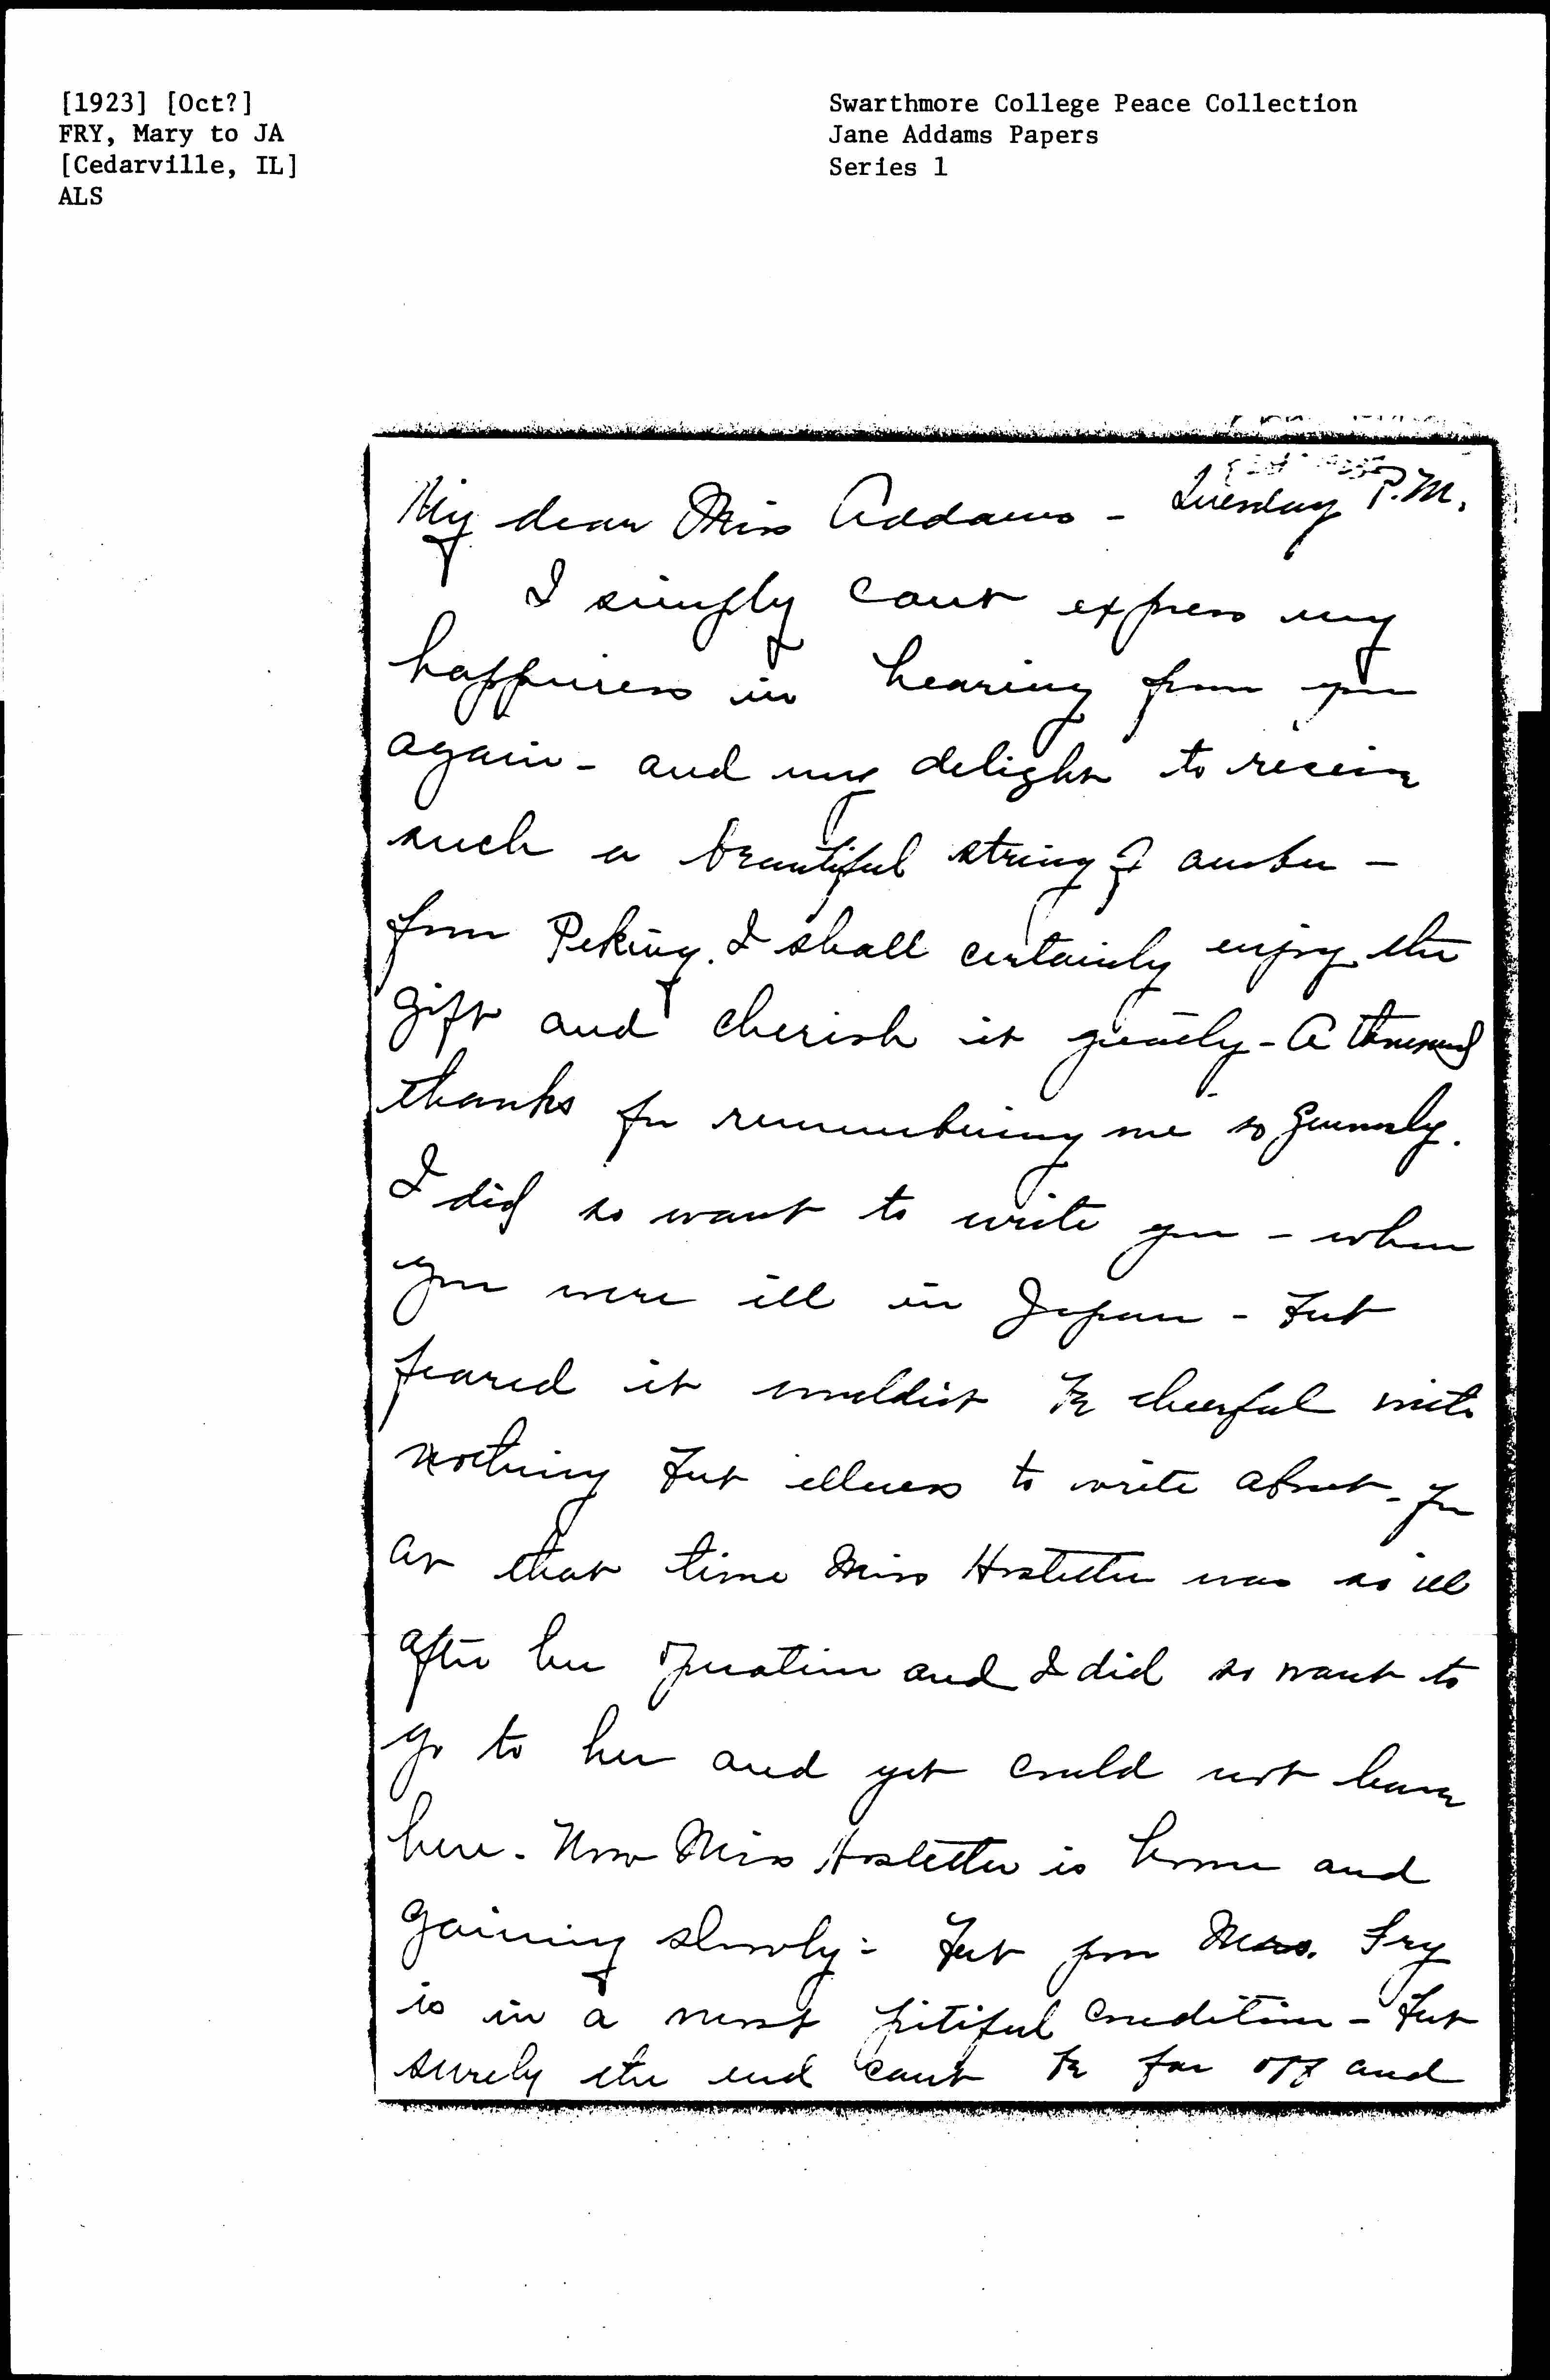 [1923] [Oct?]
FRY, Mary to JA
[Cedarville, IL]
ALS
Swarthmore College Peace Collection
Jane Addams Papers
Series 1
Tuesday P.M.
My dear Miss Addams -
I simply cant express my
happiness in hearing from you
again - and my delight to receive
such a beautiful string of amber -
from Peking. I shall certainly enjoy the
gift and cherish it greatly - A thousand
thanks for remembering me so generously.
I did so want to write you - when
you were ill in Japan - but
feared it wouldn't be cheerful with
nothing but illness to write about - for
at that time Miss Hostetter was so ill
after her operation and I did so want to
go to her and yet could not leave
here. Now Miss Hostetter is home and
gaining slowly - but poor Mrs. Fry
is in a most pitiful condition - but
surely the end cant be far off and